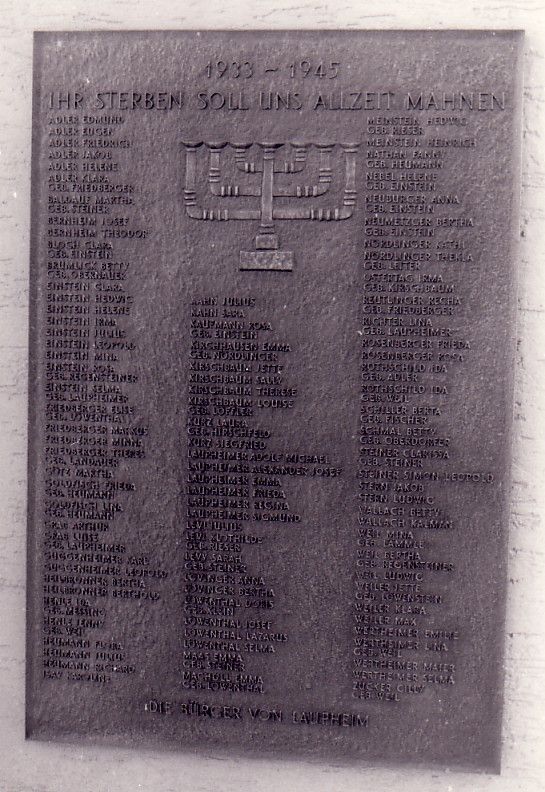 1933 - 1945
IHR STERBEN SOLL UNS ALLZEIT MAHNEN
ADLER EDMUND
ADLER EUGEN
ADLER FRIEDRICH
ADLER JAKOB
ADLER HELENE
ADLER KLARA
GEB. FRIEDBERGER
BALLAUF MARTHA
GEB. STEINER
BERNHEIM JOSEF
BERNHEIM THEODOR
BLOCH CLARA
GEB. EINSTEIN
BRUMLICK BETTY
GEB. OBERNAUER
EINSTEIN CLARA
EINSTEIN HEDWIG
EINSTEIN HELENE
EINSTEIN IRMA
EINSTEIN JULIUS
EINSTEIN LEOPOLD
EINSTEIN MINA
EINSTEIN ROSA
GEB. REGENSTEINER
EINSTEIN SELMA
GEB. LAUPHEIMER
FRIEDBERGER ELISE
GEB. LÖWENTHAL
FRIEDBERGER MARKUS
FRIEDBERGER MINNA
FRIEDBERGER THERES
GEB. LANDAUER
GÖTZ MARTHA
GOLDFISCH FRIEDA
GEB. HEUMANN
GOLDFISCH LINA
GEB. HEUMANN
GRAB ARTHUR
GRAB LUISE
GEB. LAUPHEIMER
GUGGENHEIMER KARL
GUGGENHEIMER LEOPOLD
HEILBRONNER BERTHA
HEILBRONNER BERTHOLD
HENLE IDA
GEB. MESSING
HENLE JENNY
GEB. WEIL
HEUMANN FLORA
HEUMANN JULIUS
HEUMANN RICHARD
ISAY KAROLINE
KAHN JULIUS
KAHN SARA
KAUFMANN ROSA
GEB. EINSTEIN
KIRCHHAUSEN EMMA
GEB. NÖRDLINGER
KIRSCHBAUM JETTE
KIRSCHBAUM SALLY
KIRSCHBAUM THERESE
KIRSCHBAUM LOUISE
GEB. LÖFFLER
KURZ LAURA
GEB. HIRSCHFELD
KURZ SIEGFRIED
LAUPHEIMER ADOLF MICHAEL
LAUPHEIMER ALEXANDER JOSEF
LAUPHEIMER EMMA
LAUPHEIMER FRIEDA
LAUPHEIMER REGINA
LAUPHEIMER SIGMUND
LEVI JULIUS
LEVI KLOTHILDE
GEB. RIESER
LEVY SARAH
GEB. STEINER
LÖWINGER ANNA
LÖWINGER BERTHA
LÖWENTHAL DORIS
GEB. KLEIN
LÖWENTHAL JOSEF
LÖWENTHAL LAZARUS
LÖWENTHAL SELMA
MAAS EMMA
GEB. STEINER
MACHOLL EMMA
GEB. LÖWENTHAL
MEINSTEIN HEDWIG
GEB. RIESER
MEINSTEIN HEINRICH
NATHAN FANNY
GEB. HEUMANN
NEBEL HELENE
GEB. EINSTEIN
NEUBURGER ANNA
GEB. EINSTEIN
NEUMETZGER BERTHA
GEB. EINSTEIN
NÖRDLINGER KÄTHI
NÖRDLINGER THEKLA
GEB. LEITER
OSTERTAG IRMA
GEB. KIRSCHBAUM
REUTLINGER RECHA
GEB. FRIEDBERGER
RICHTER LINA
GEB. LAUPHEIMER
ROSENBERGER FRIEDA
ROSENBERGER ROSA
ROTHSCHILD IDA
GEB. ADLER
ROTHSCHILD IDA
GEB. WEIL
SCHILLER BERTA
GEB. FISCHER
SCHMAL BETTY
GEB. OBERDORFER
STEINER CLARISSA
GEB. STEINER
STEINER SIMON LEOPOLD
STERN JAKOB
STERN LUDWIG
WALLACH BETTY
WALLACH KALMAN
WEIL MINA
GEB.
WEIL BERTHA
GEB. REGENSTEINER
WEIL LUDWIG
WEILER JETTE
GEB. LÖWENSTEIN
WEILER KLARA
WEILER MAX
WERTHEIMER EMILIE
WERTHEIMER LINA
GEB. WEIL
WERTHEIMER MAIER
WERTHEIMER SELMA
ZÜCKER CILLY
GEB. WEIL
DIE BÜRGER VON LAUPHEIM